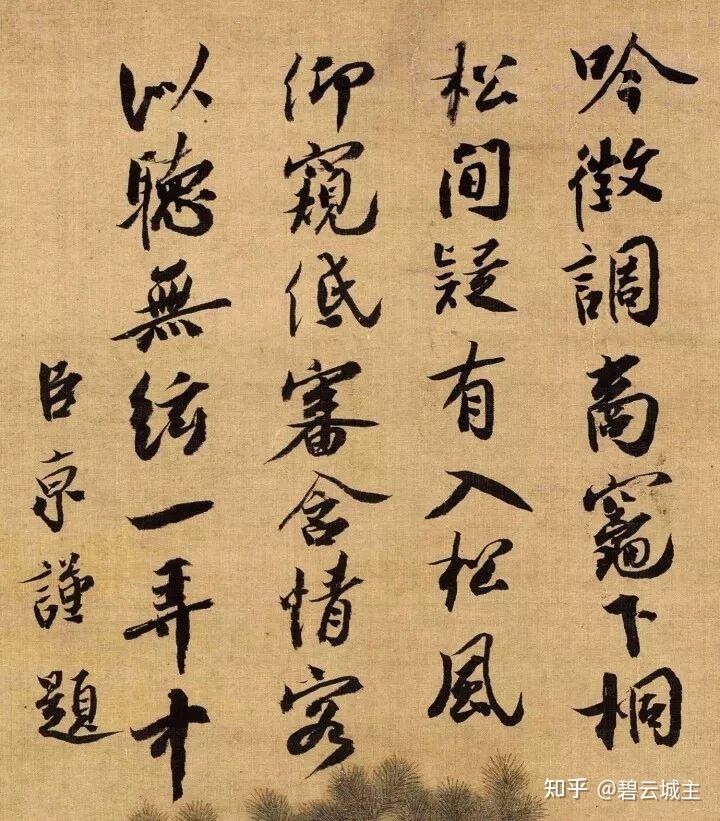 吟徵調商竈下桐
松間疑有入松風
仰窺低審含情客
以聽無絃一弄中
臣京謹題
知乎 @碧云城主